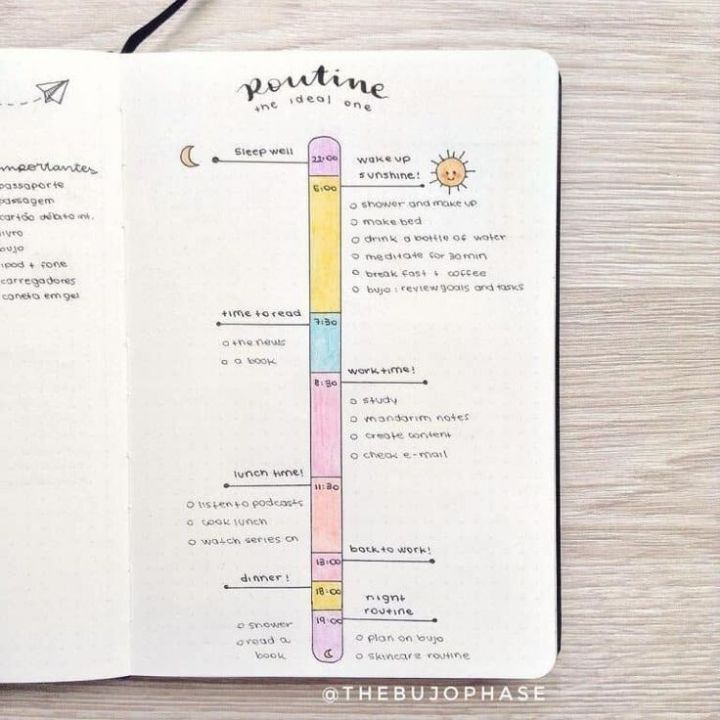 Routine
the ideal one
mportantes
passaporte
passagem
cartão débito int.
livro
bujo
ipod + fone
carregadores
caneta em gel
sleep well
22:00
wake up
sunshine!
5:00
shower and make up
make bed
drink a bottle of water
meditate for 30 min
break fast + coffee
bujo: review goals and tasks
time to read
7:30
the news
a book
work time!
8:30
study
mandarim notes
create content
check e-mail
lunch time!
11:30
listen to podcasts
cook lunch
watch series ch
back to work!
13:00
dinner!
18:00
night
routine
19:00
shower
read a
book
plan on bujo
skincare routine
@THEBUJOPHASE